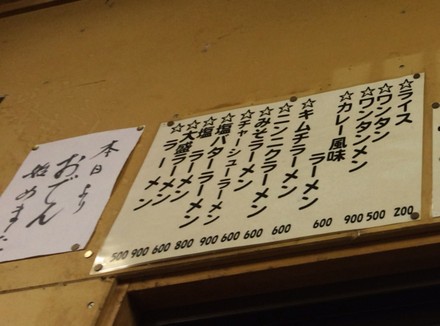 ☆ライス 200
☆ワンタン 500
☆ワンタンメン 900
☆カレー風味
ラーメン 600
☆キムチラーメン 600
☆ニンニクラーメン 600
☆みそラーメン 600
☆チャーシューラーメン 900
☆塩バターラーメン 800
☆塩ラーメン 600
☆大盛ラーメン 900
☆ラーメン 500
本日より
おでん
始めました